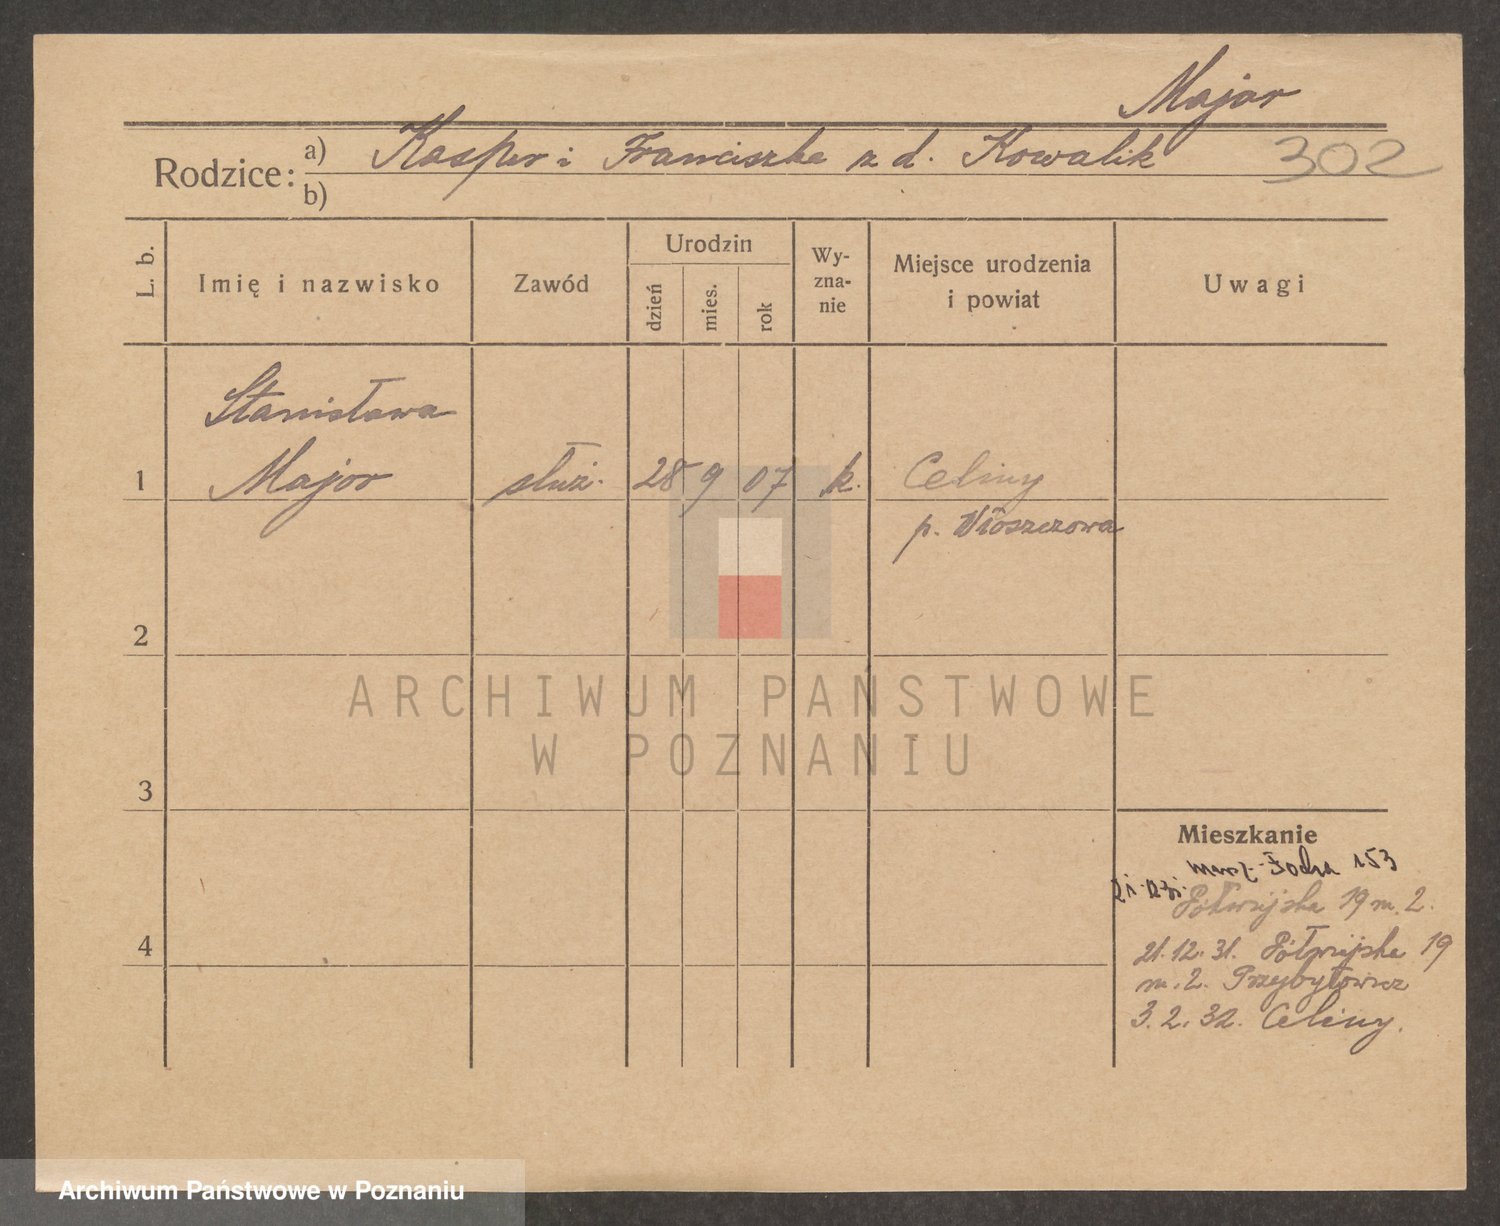 Major
Rodzice: a) Kasper i Franciszka z d. Kowalik 302
b)
L. b.
Imię i nazwisko
Zawód
Urodzin
dzień
mies.
rok
Wy-
zna-
nie
Miejsce urodzenia
i powiat
Uwagi
Stanisława
1 Major służ. 28 9 07 k. Celiny
p. Włoszczowa
2
ARCHIWUM PAŃSTWOWE
W POZNANIU
3
Mieszkanie
marsz. Focha 153
Półwiejska 19 m. 2.
4
21.12.31. Półwiejska 19
m. 2. Przybyłowicz
3.2.32. Celiny.
Archiwum Państwowe w Poznaniu